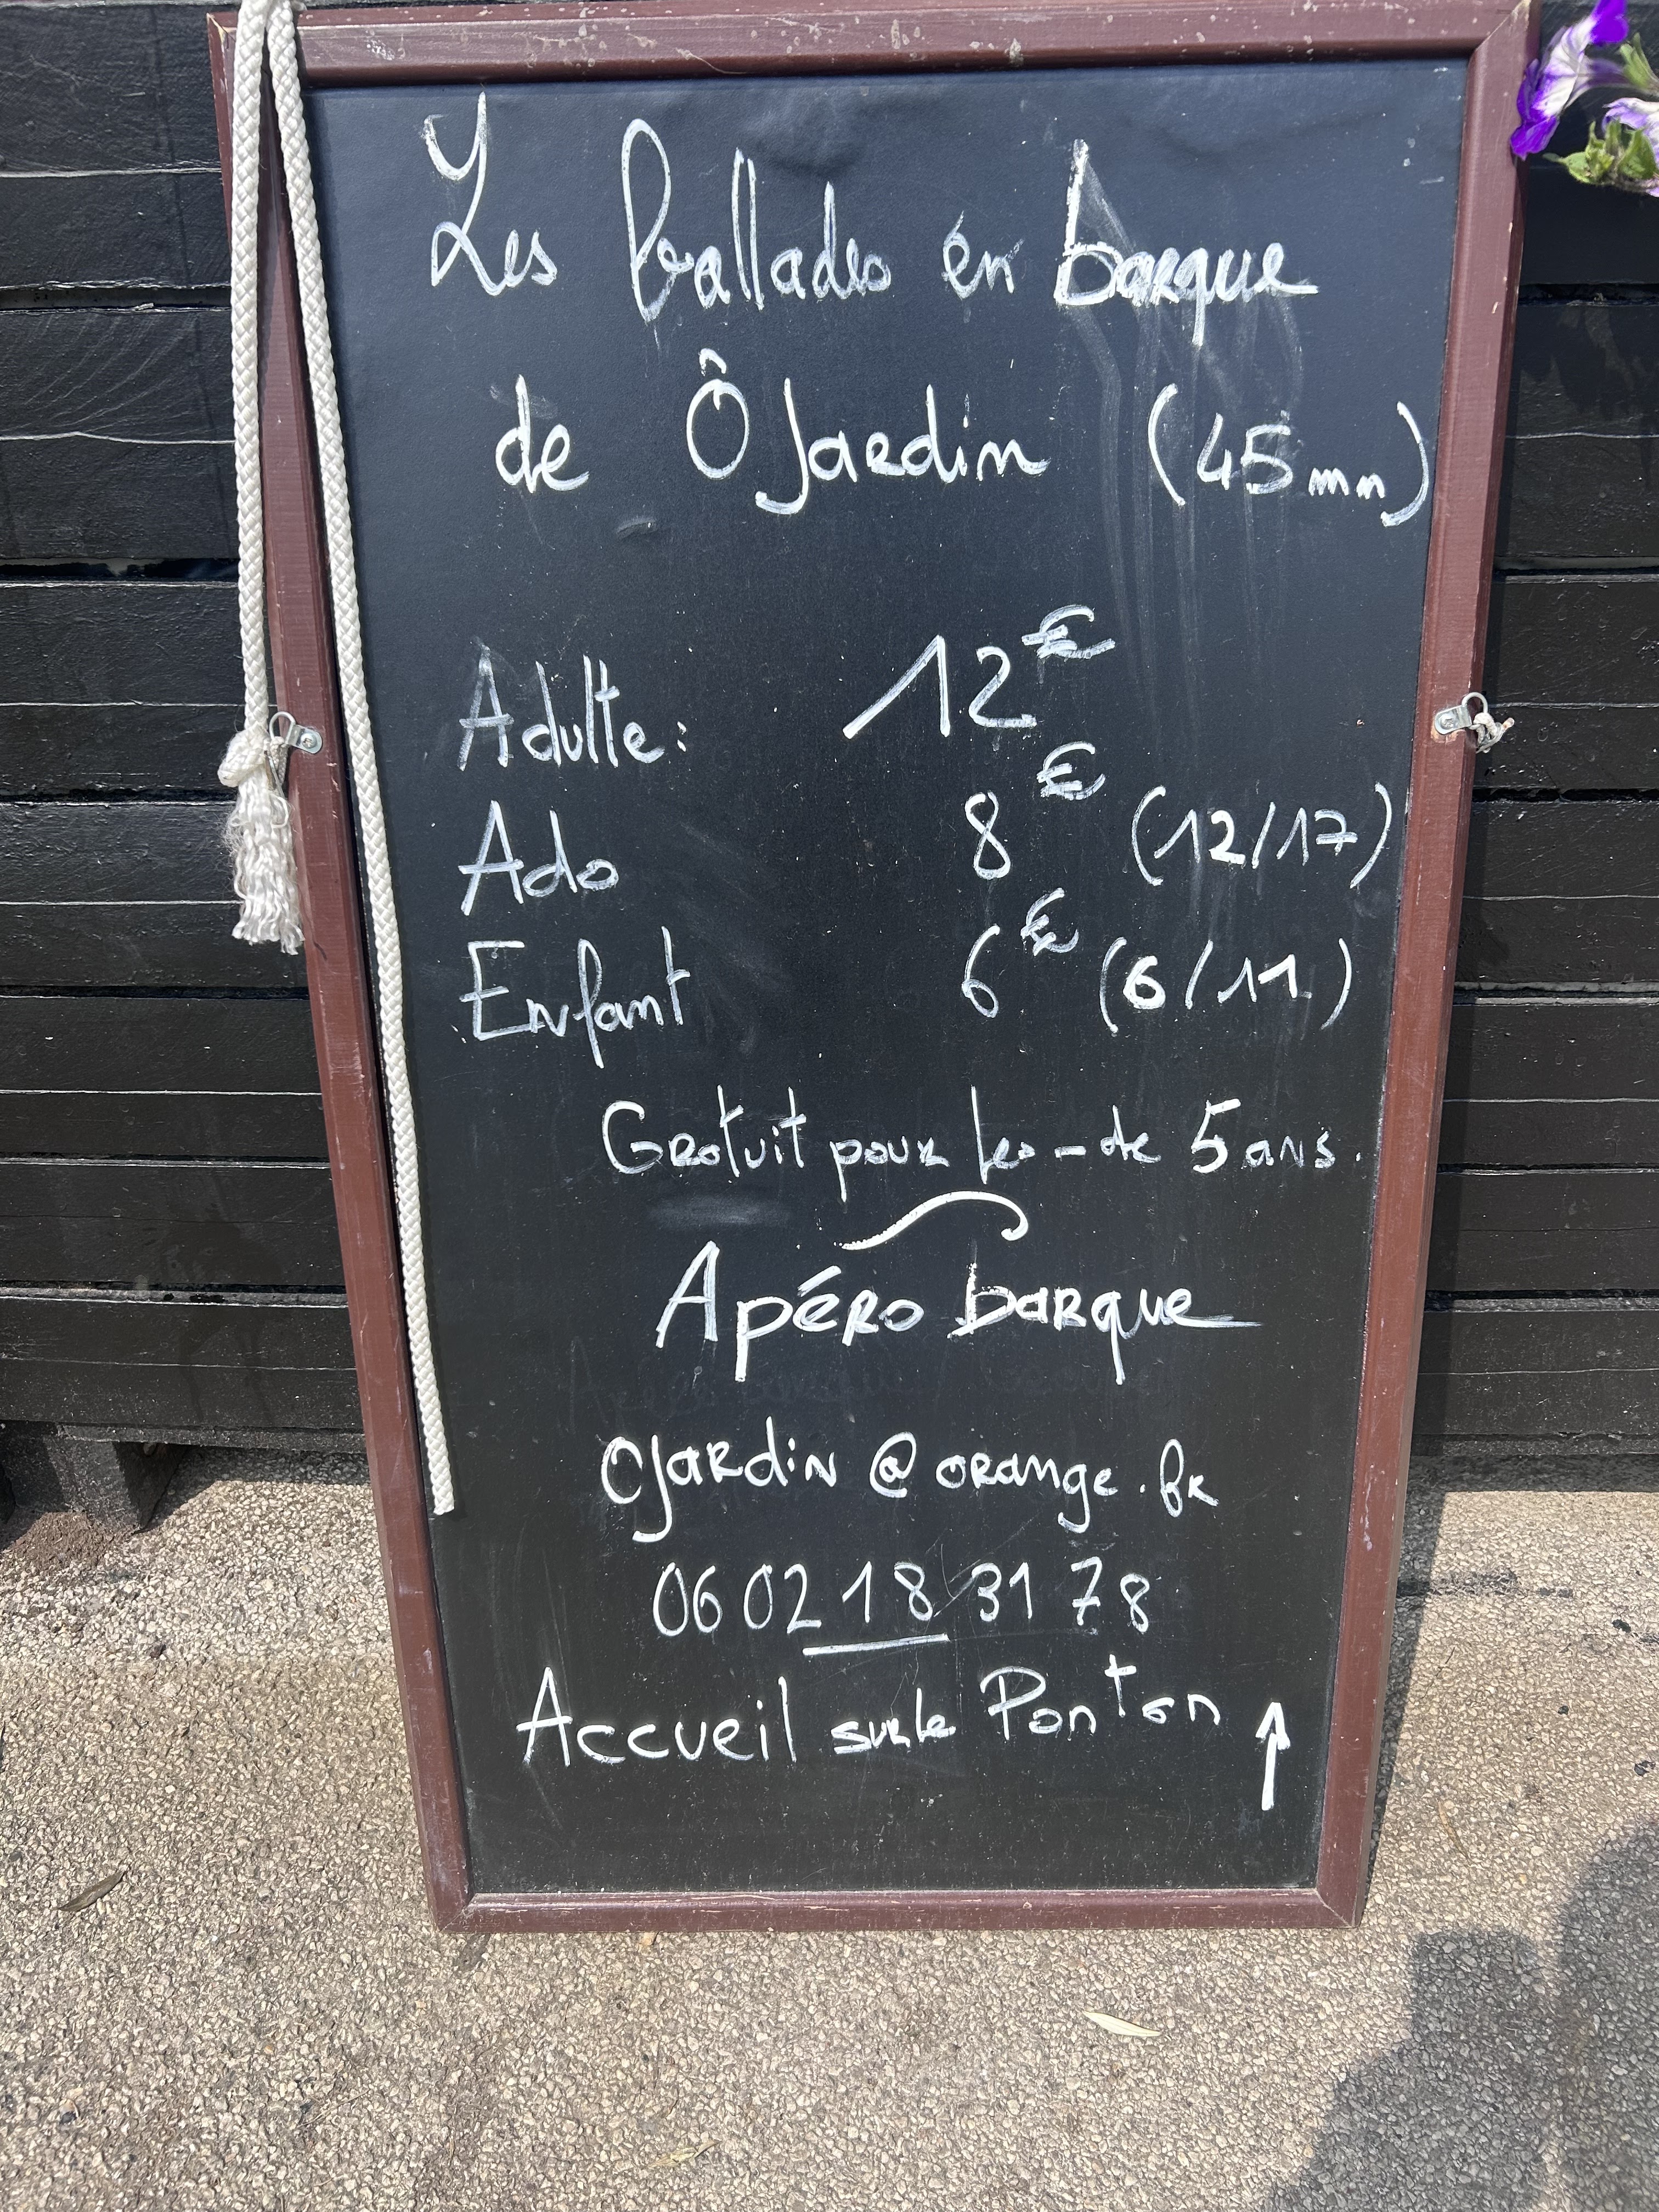 Les ballades en barque
de Ô Jardin (45mn)
Adulte: 12€
Ado 8€ (12/17)
Enfant 6€ (6/11)
Gratuit pour les - de 5 ans.
Apéro barque
ojardin@orange.fr
06 02 18 31 78
Accueil sur le Ponton ↑